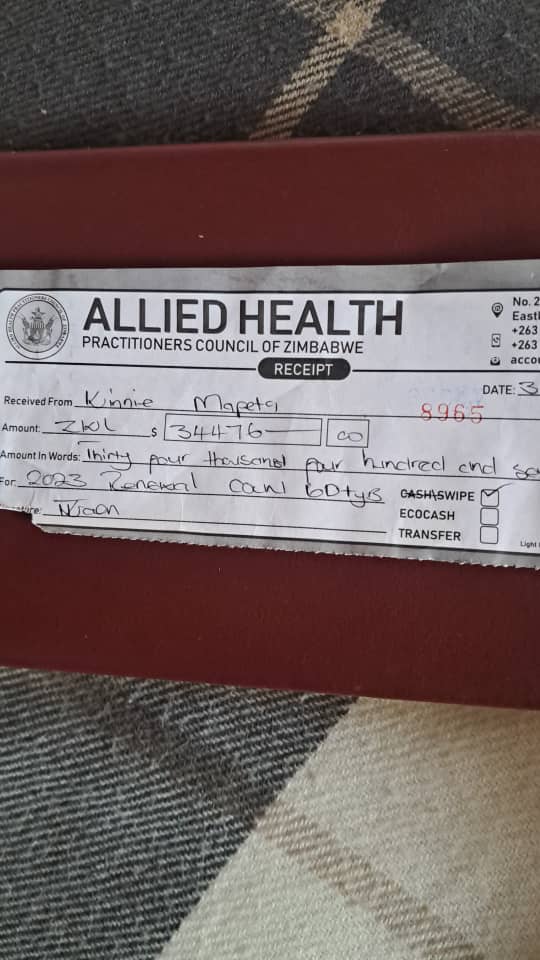 ALLIED HEALTH
PRACTITIONERS COUNCIL OF ZIMBABWE
RECEIPT
No. 2
Eastl
+263
+263
accou
DATE: 3
Received From Kinnie Mapeta
8965
Amount: ZWL $ 34476 00
Amount In Words: Thirty four thousand four hundred and se
For: 2023 Renewal
CASH\SWIPE
ECOCASH
TRANSFER
Light